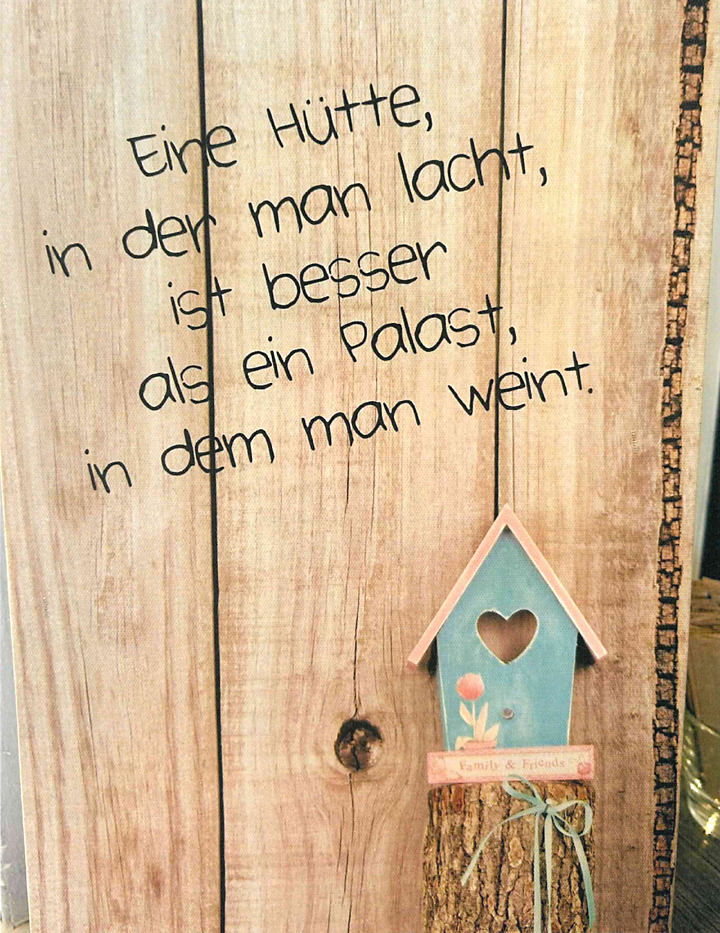 Eine Hütte,
in der man lacht,
ist besser
als ein Palast,
in dem man weint.
Family & Friends